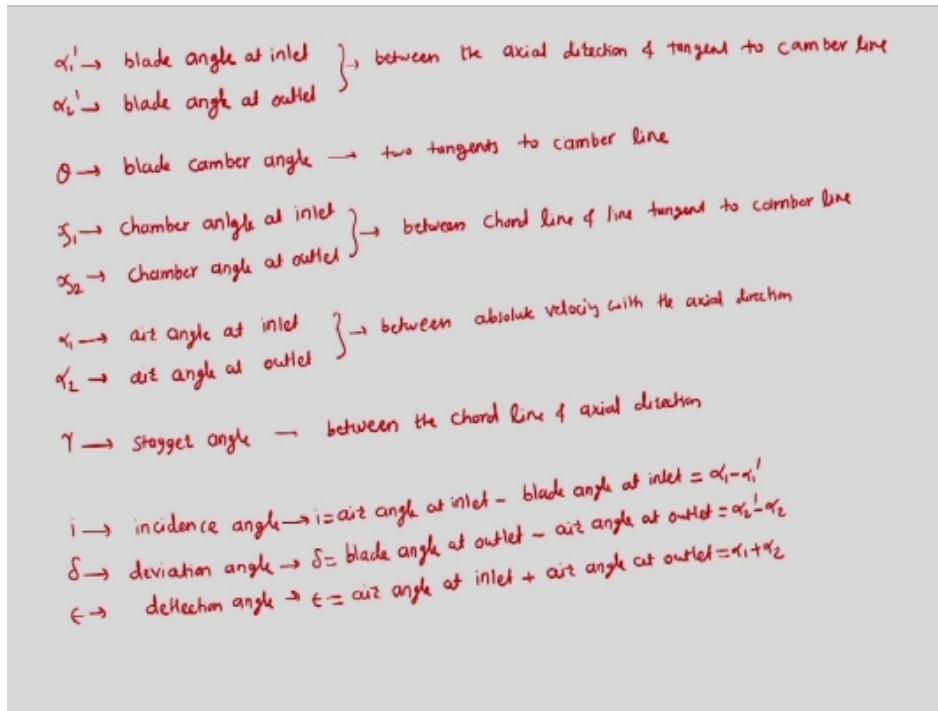 α₁' → blade angle at inlet } → between the axial direction & tangent to camber line
α₂' → blade angle at outlet
θ → blade camber angle → two tangents to camber line
→ Chamber anlgle at inlet } → between Chord line & line tangent to camber line
→ Chamber angle at outlet
α₁ → air angle at inlet } → between absolute velociy with the axial direction
α₂ → air angle at outlet
γ → stagger angle — between the chord line & axial direction
i → incidence angle → i = air angle at inlet - blade angle at inlet = α₁-α₁'
δ → deviation angle → δ = blade angle at outlet - air angle at outlet = α₂'-α₂
ϵ → deflection angle → ϵ = air angle at inlet + air angle at outlet = α₁+α₂